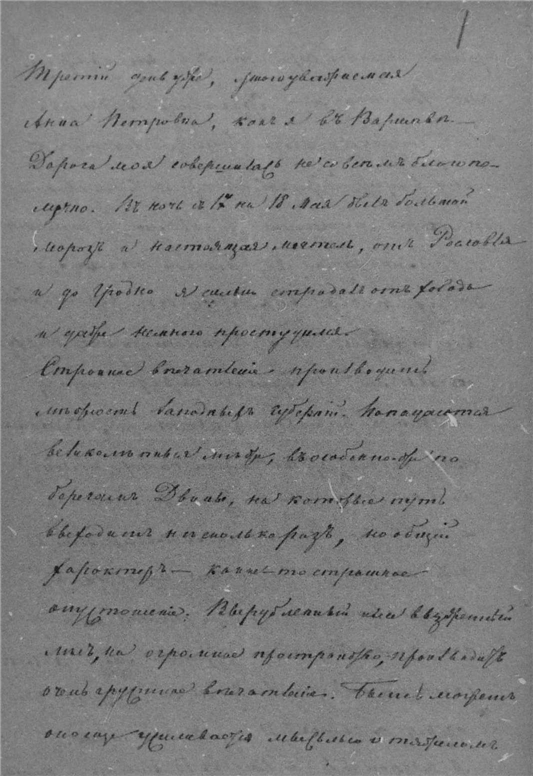 1
Третій день уже, многоуважаемая
Анна Петровна, какъ я въ Варшавѣ —
Дорога моя совершилась не совсѣмъ благопо-
лучно. Въ ночь съ 17 на 18 Мая былъ большой
морозъ и настоящая мятель, отъ Рославля
и до Гродно я сильно страдалъ отъ холода
и даже немного простудился.
Странное впечатлѣніе производитъ
мѣстность западныхъ губерній. Попадаются
великолѣпныя мѣста, въ особенности по
берегамъ Двины, на которые путь
выходитъ нѣсколько разъ, но общій
характеръ — какое то страшное
опустошеніе. Вырубленный или выжженный
лѣсъ, на огромное пространство, производитъ
очень грустное впечатлѣніе. Быть можетъ
оно еще усиливается мыслью о тяжеломъ